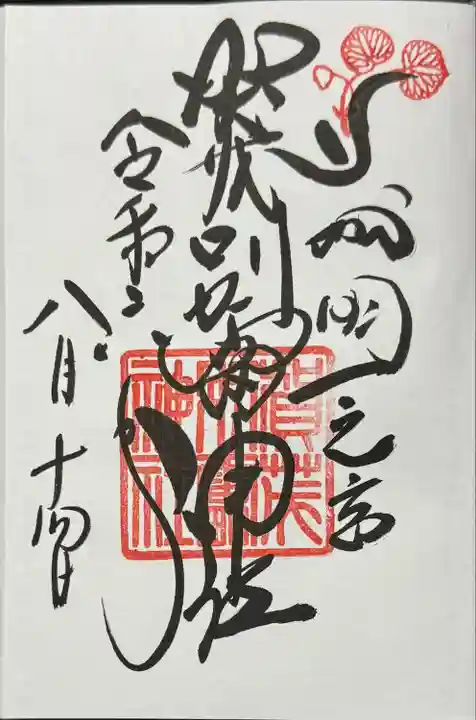 山城國一之宮
賀茂別雷神社
令和二
八月十四日
賀茂
別雷
神社